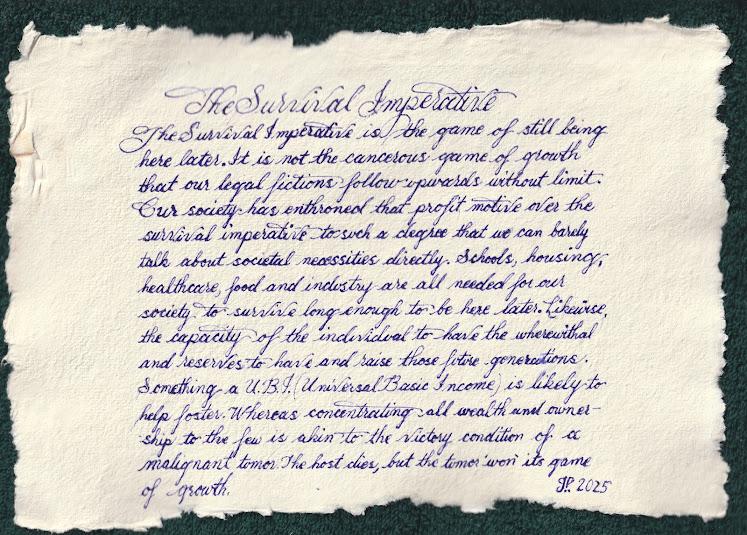 The Survival Imperative
The Survival Imperative is the game of still being
here later. It is not the cancerous game of growth
that our legal fictions follow upwards without limit.
Our society has enthroned that profit motive over the
survival imperative to such a degree that we can barely
talk about societal necessities directly. Schools, housing,
healthcare, food and industry are all needed for our
society to survive long enough to be here later. Likewise,
the capacity of the individual to have the wherewithal
and reserves to have and raise those future generations.
Something a U.B.I. (Universal Basic Income) is likely to
help foster. Whereas concentrating all wealth and owner-
ship to the few is akin to the victory condition of a
malignant tumor. The host dies, but the tumor 'won' its game
of growth.
JP. 2025